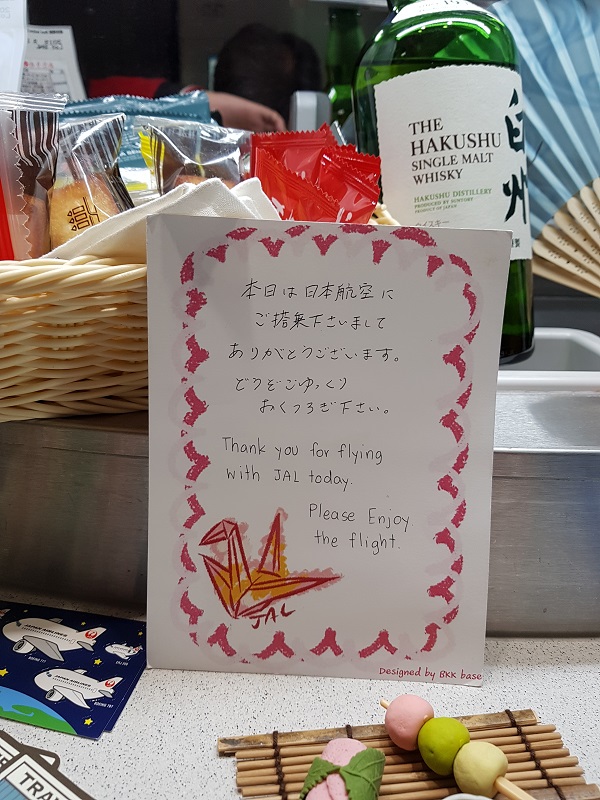 THE
HAKUSHU
SINGLE MALT
WHISKY
HAKUSHU DISTILLERY
PRODUCED BY SUNTORY
PRODUCT OF JAPAN
白州
本日は日本航空に
ご搭乗下さいまして
ありがとうございます。
どうぞごゆっくり
おくつろぎ下さい。
Thank you for flying
with JAL today.
Please Enjoy
the flight.
JAL
Designed by BKK base
JAPAN AIRLINES
BOEING 777
BOEING 787
TRA